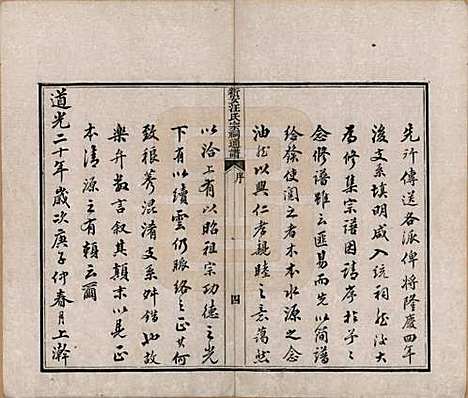 先行傳送各派俾將隆慶四年
後支系填明咸入統祠然後大
為修集宗譜因請序於予予
念修譜雖云匪易而先以簡譜
給發使閱之者木本水源之念
油然以興仁孝親睦之意藹然
新安汪氏宗祠通譜
序
四
以洽上有以昭祖宗功德之光
下有以續雲仍脈絡之正其何
致稂莠混淆支系舛錯也故
樂弁數言叙其顛末以見正
本清源之有賴云爾
道光二十年歲次庚子仲春月上澣